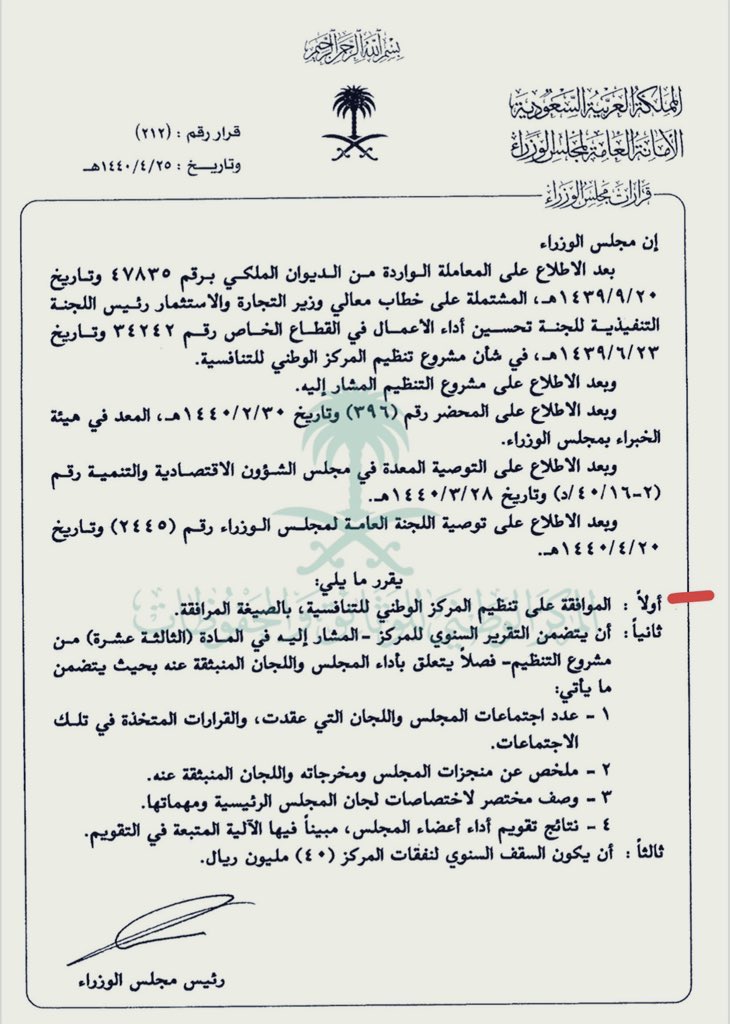 بسم الله الرحمن الرحيم
المملكة العربية السعودية
الأمانة العامة لمجلس الوزراء
قرار رقم : (٢١٢)
وتاريـخ : ١٤٤٠/٤/٢٥هـ
قرارات مجلس الوزراء
إن مجلس الوزراء
بعد الاطلاع على المعاملة الواردة من الديوان الملكي برقم ٤٧٨٣٥ وتاريخ
١٤٣٩/٩/٢٠هـ، المشتملة على خطاب معالي وزير التجارة والاستثمار رئيس اللجنة
التنفيذية للجنة تحسين أداء الأعمال في القطاع الخاص رقم ٣٤٢٤٢ وتاريخ
١٤٣٩/٦/٢٣هـ، في شأن مشروع تنظيم المركز الوطني للتنافسية.
وبعد الاطلاع على مشروع التنظيم المشار إليه.
وبعد الاطلاع على المحضر رقم (٣٩٦) وتاريخ ١٤٤٠/٢/٣٠هـ، المعد في هيئة
الخبراء بمجلس الوزراء.
وبعد الاطلاع على التوصية المعدة في مجلس الشؤون الاقتصادية والتنمية رقم
(٢-٤٠/١٦/د) وتاريخ ١٤٤٠/٣/٢٨هـ.
وبعد الاطلاع على توصية اللجنة العامة لمجلس الوزراء رقم (٢٤٤٥) وتاريخ
١٤٤٠/٤/٢٠هـ.
يقرر ما يلي:
أولاً : الموافقة على تنظيم المركز الوطني للتنافسية، بالصيغة المرافقة.
ثانياً: أن يتضمن التقرير السنوي للمركز -المشار إليه في المادة (الثالثة عشرة) من
مشروع التنظيم- فصلاً يتعلق بأداء المجلس واللجان المنبثقة عنه بحيث يتضمن
ما يأتي:
١ - عدد اجتماعات المجلس واللجان التي عقدت، والقرارات المتخذة في تلك
الاجتماعات.
٢ - ملخص عن منجزات المجلس ومخرجاته واللجان المنبثقة عنه.
٣ - وصف مختصر لاختصاصات لجان المجلس الرئيسية ومهماتها.
٤ - نتائج تقويم أداء أعضاء المجلس، مبيناً فيها الآلية المتبعة في التقويم.
ثالثاً : أن يكون السقف السنوي لنفقات المركز (٤٠) مليون ريال.
رئيس مجلس الوزراء
المركز الوطني للوثائق والمحفوظات